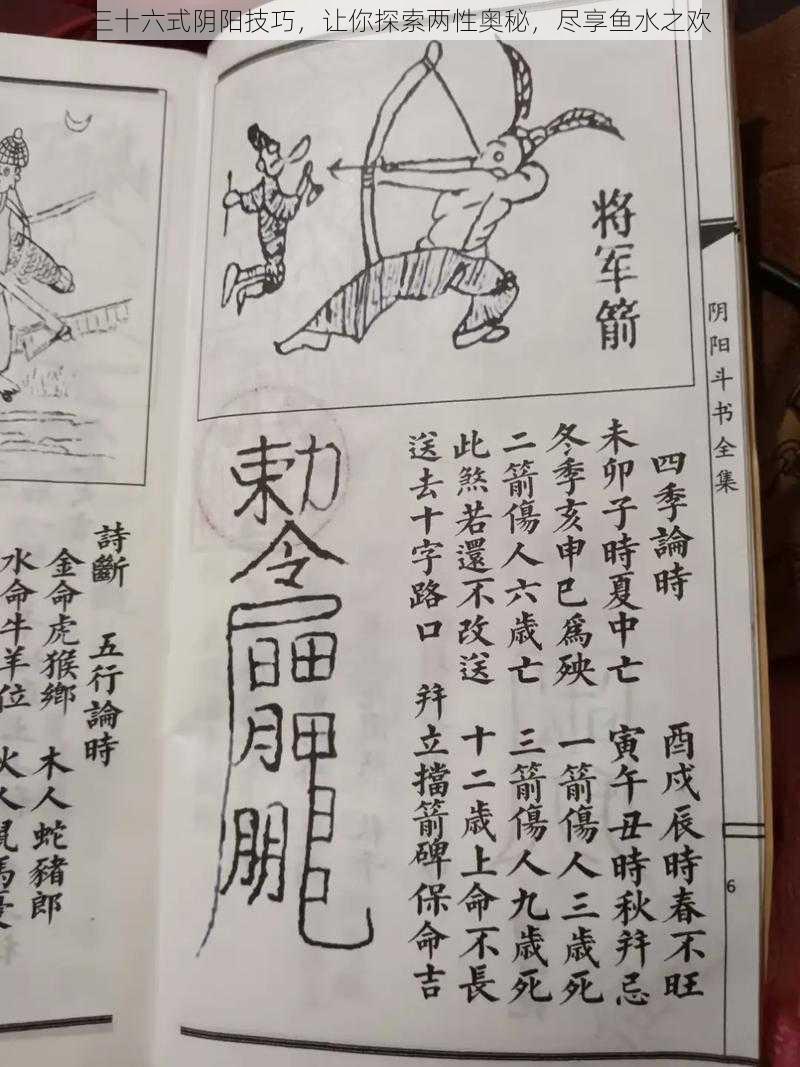 三十六式阴阳技巧，让你探索两性奥秘，尽享鱼水之欢
将军箭
阴阳斗书全集
四季論時　酉戍辰時春不旺
未卯子時夏中亡　寅午丑時秋犽忌
冬季亥申巳為殃　一箭傷人三歲死
二箭傷人六歲亡　三箭傷人九歲死
此煞若還不改送　十二歲上命不長
送去十字路口　犽立擋箭碑保命吉
勅令
6
詩斷　五行論時
金命虎猴鄉　木人蛇豬郎
水命牛羊位